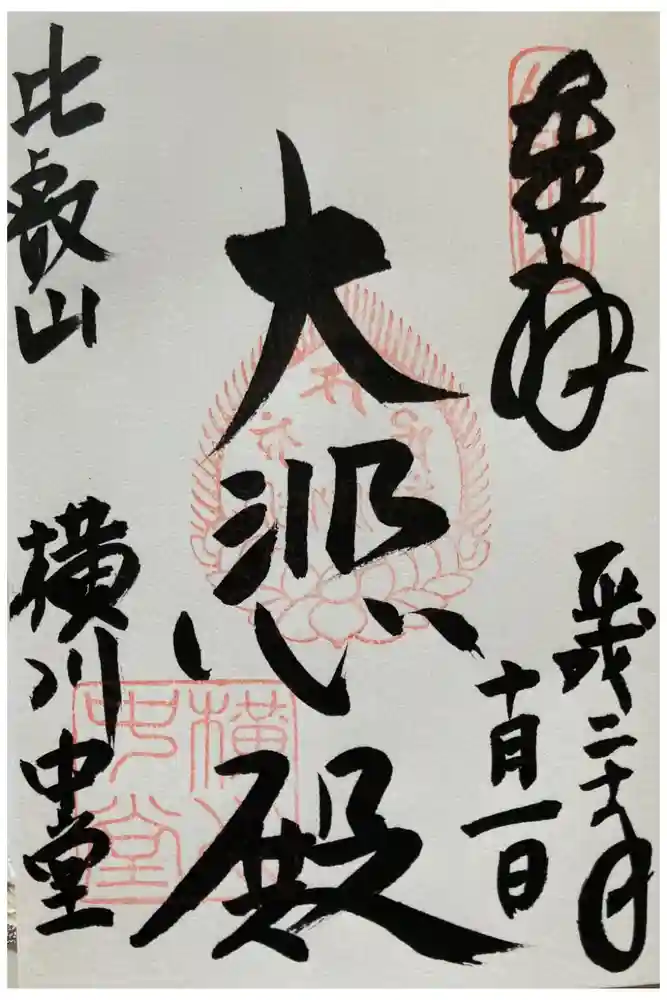 奉拝
平成二十八年
十月一日
大悲殿
比叡山
横川中堂
横川
中堂